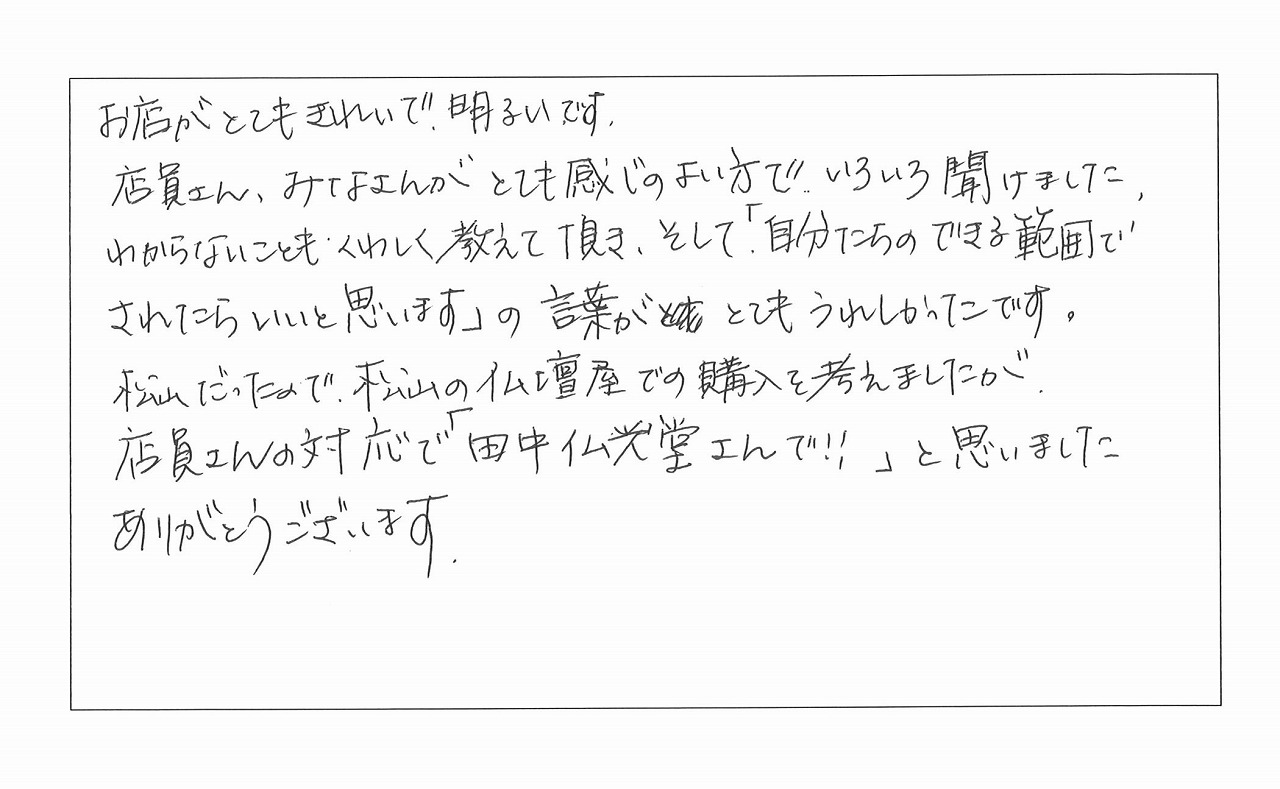 お店がとてもきれいで、明るいです。
店員さん、みなさんがとても感じのよい方で、いろいろ聞けました、
わからないことも、くわしく教えて頂き、そして「自分たちのできる範囲で
されたらいいと思います」の言葉がとてもうれしかったです。
松山だったので、松山の仏壇屋での購入を考えましたが、
店員さんの対応で「田中仏光堂さんで!!」と思いました
ありがとうございます.